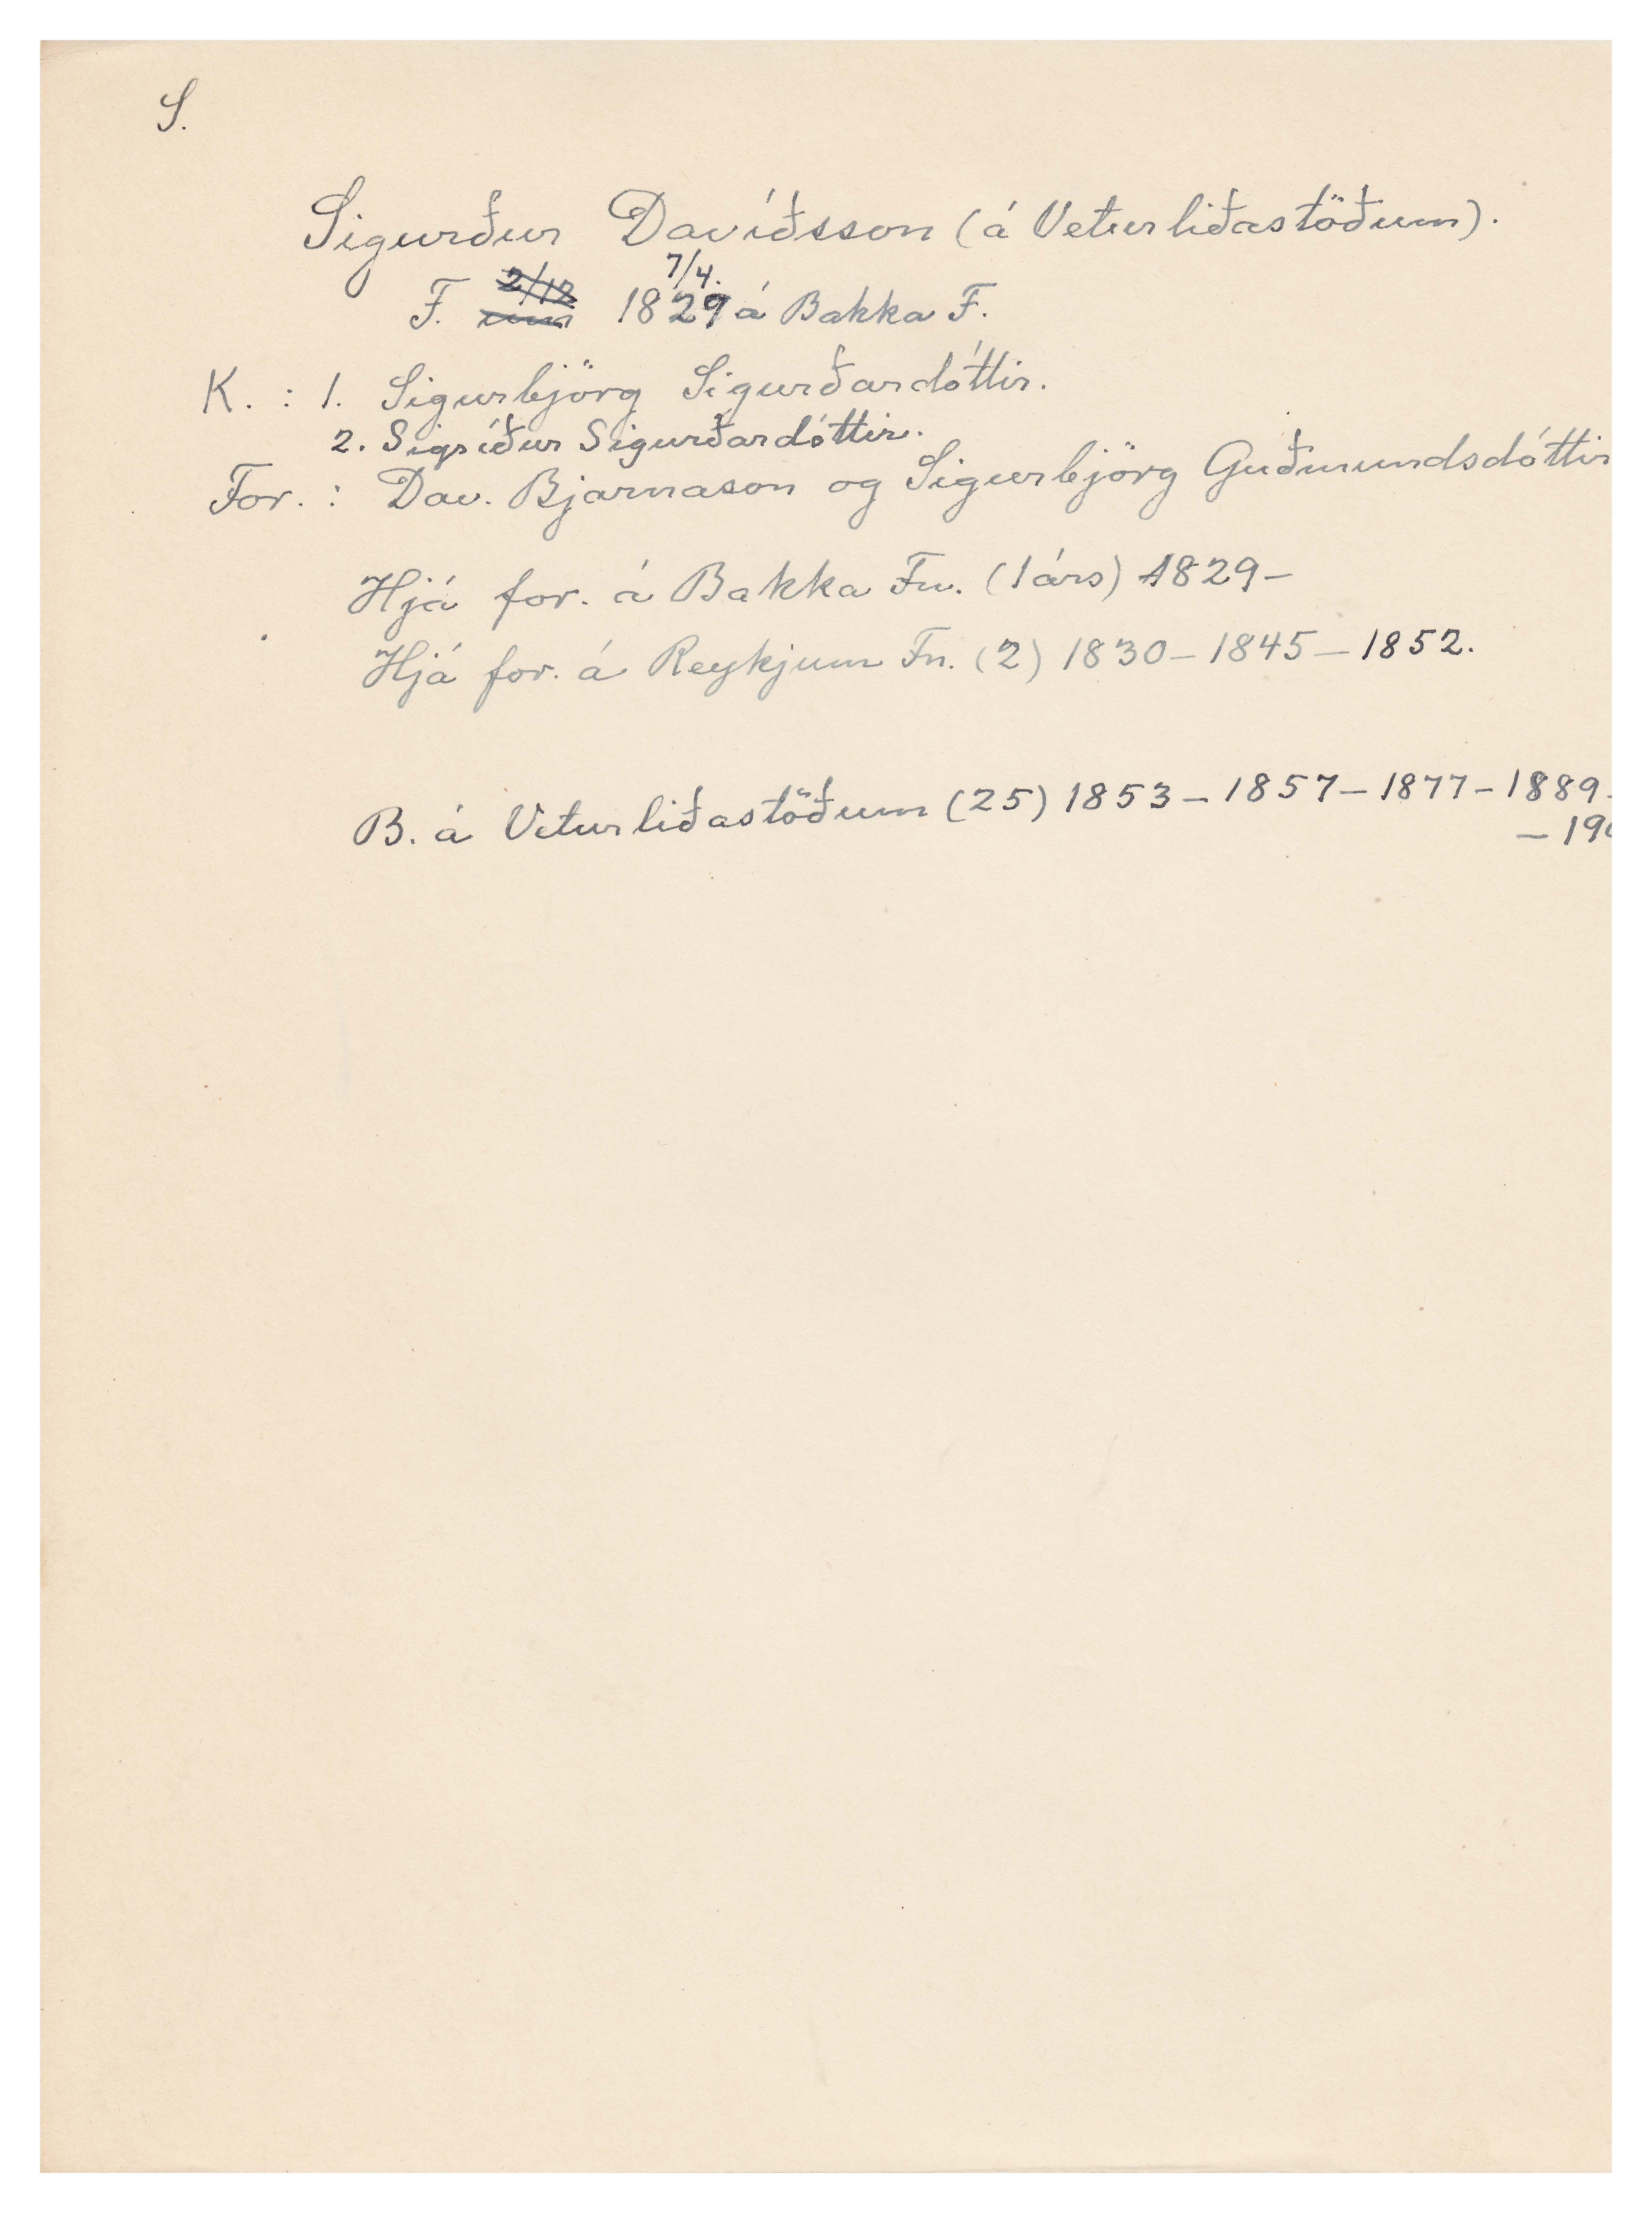 S.
Sigurður Davíðsson (á Veturliðastöðum).
7/4.
F. 2/12 um 1829 á Bakka F.
K. : 1. Sigurbjörg Sigurðardóttir.
2. Sigríður Sigurðardóttir.
For. : Dav. Bjarnason og Sigurbjörg Guðmundsdóttir
Hjá for. á Bakka Fn. (1árs) 1829-
Hjá for. á Reykjum Fn. (2) 1830-1845-1852.
B. á Veturliðastöðum (25) 1853-1857-1877-1889-
-19